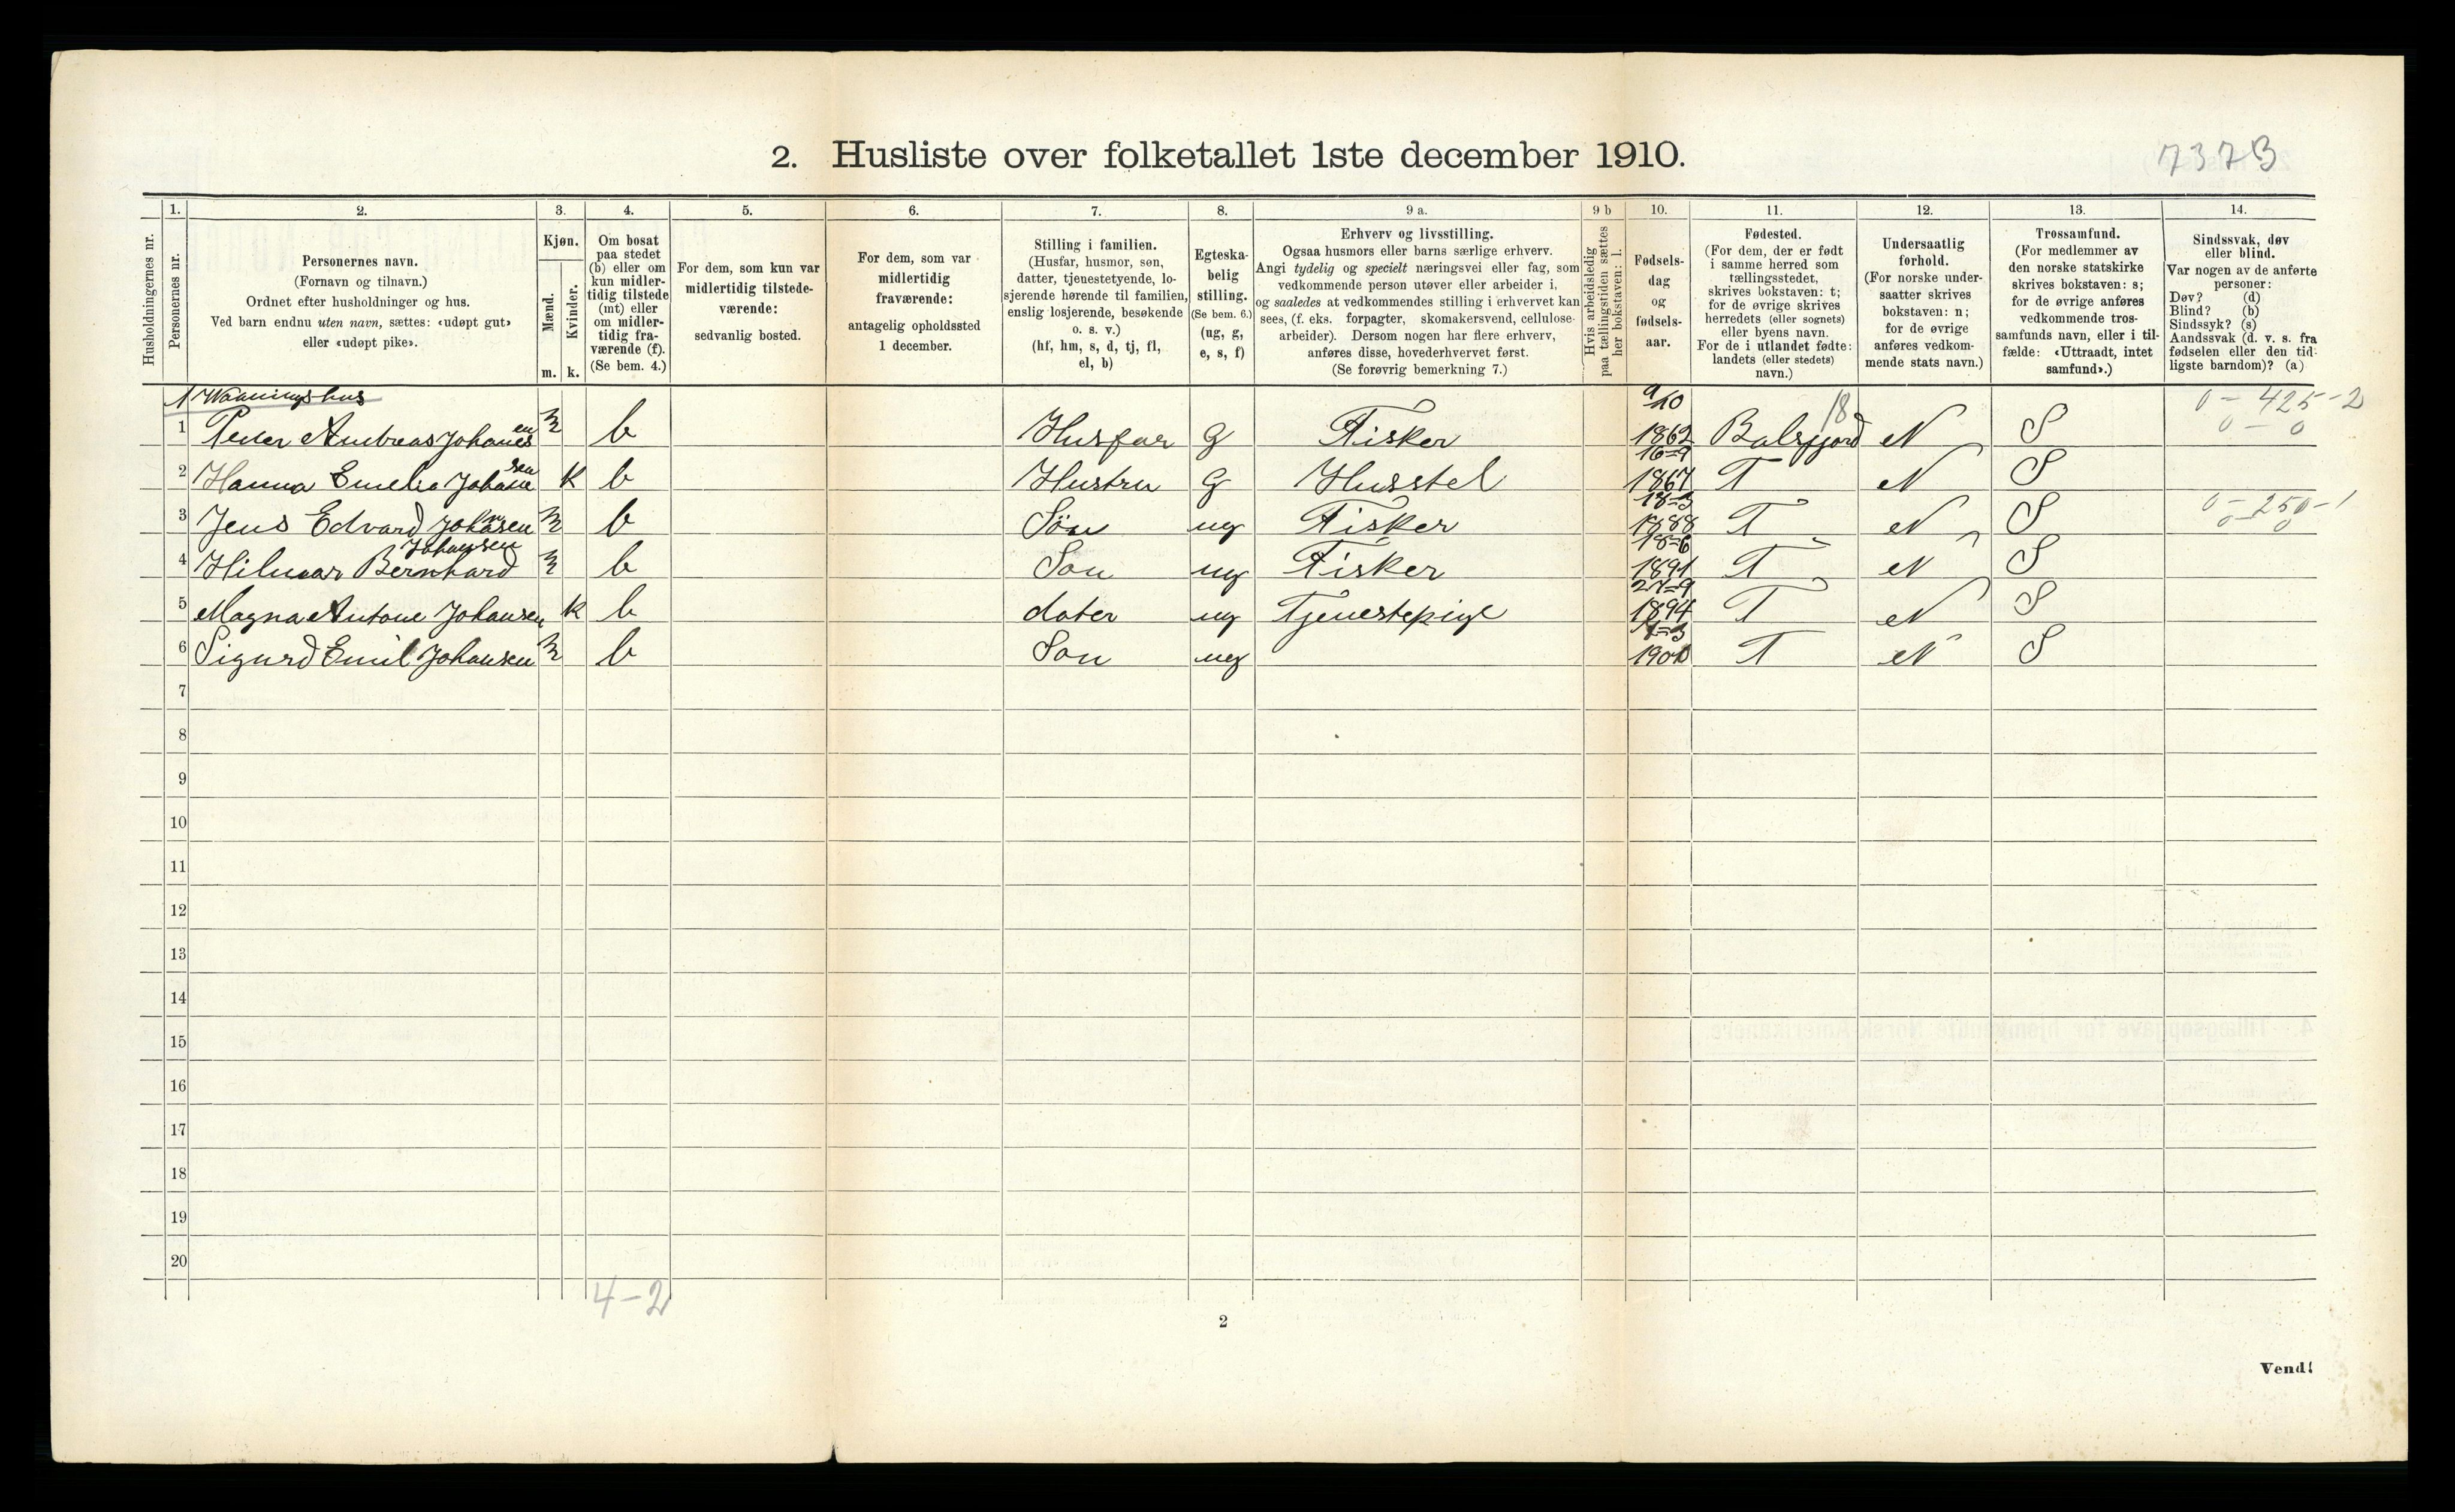 2. Husliste over folketallet 1ste december 1910.
7373
1. 2. 3. 4. 5. 6. 7. 8. 9 a. 9 b 10. 11. 12. 13. 14.
Husholdningernes nr.
Personernes nr.
Personernes navn.
(Fornavn og tilnavn.)
Ordnet efter husholdninger og hus.
Ved barn endnu uten navn, sættes: «udøpt gut»
eller «udøpt pike».
Kjøn.
Mænd.
Kvinder.
m. k.
Om bosat
paa stedet
(b) eller om
kun midler-
tidig tilstede
(mt) eller
om midler-
tidig fra-
værende (f).
(Se bem. 4.)
For dem, som kun var
midlertidig tilstede-
værende:
sedvanlig bosted.
For dem, som var
midlertidig
fraværende:
antagelig opholdssted
1 december.
Stilling i familien.
(Husfar, husmor, søn,
datter, tjenestetyende, lo-
sjerende hørende til familien,
enslig losjerende, besøkende
o. s. v.)
(hf, hm, s, d, tj, fl,
el, b)
Egteska-
belig
stilling.
(Se bem. 6.)
(ug, g,
e, s, f)
Erhverv og livsstilling.
Ogsaa husmors eller barns særlige erhverv.
Angi tydelig og specielt næringsvei eller fag, som
vedkommende person utøver eller arbeider i,
og saaledes at vedkommendes stilling i erhvervet kan
sees, (f. eks. forpagter, skomakersvend, cellulose-
arbeider). Dersom nogen har flere erhverv,
anføres disse, hovederhvervet først.
(Se forøvrig bemerkning 7.)
Hvis arbeidsledig
paa tællingstiden sættes
her bokstaven: l.
Fødsels-
dag
og
fødsels-
aar.
Fødested.
(For dem, der er født
i samme herred som
tællingsstedet,
skrives bokstaven: t;
for de øvrige skrives
herredets (eller sognets)
eller byens navn.
For de i utlandet fødte:
landets (eller stedets)
navn.)
Undersaatlig
forhold.
(For norske under-
saatter skrives
bokstaven: n;
for de øvrige
anføres vedkom-
mende stats navn.)
Trossamfund.
(For medlemmer av
den norske statskirke
skrives bokstaven: s;
for de øvrige anføres
vedkommende tros-
samfunds navn, eller i til-
fælde: «Uttraadt, intet
samfund».)
Sindssvak, døv
eller blind.
Var nogen av de anførte
personer:
Døv? (d)
Blind? (b)
Sindssyk? (s)
Aandssvak (d. v. s. fra
fødselen eller den tid-
ligste barndom)? (a)
1 Waaningshus
1 Peder Andreas Johansen m b Husfar g Fisker 9/10 1862 Balsfjord 18 N S 0 - 425 - 2 0 - 0
2 Hanna Emelie Johansen k b Hustru g Husstel 16=9 1867 T N S
3 Jens Edvard Johansen m b Sön ug Fisker 18=3 1888 T N S 0 - 250 - 1 0 - 0
4 Hilmar Bernhard Johansen m b Son ug Fisker 18=6 1891 T N S
5 Magna Antone Johansen k b dater ug Tjenestepige 27=9 1894 T N S
6 Sigurd Emil Johansen m b Son ug 1900 T N S
7
8
9
10
11
12
13
14
15
16
17
18
19
20
4 - 2
2
Vend!